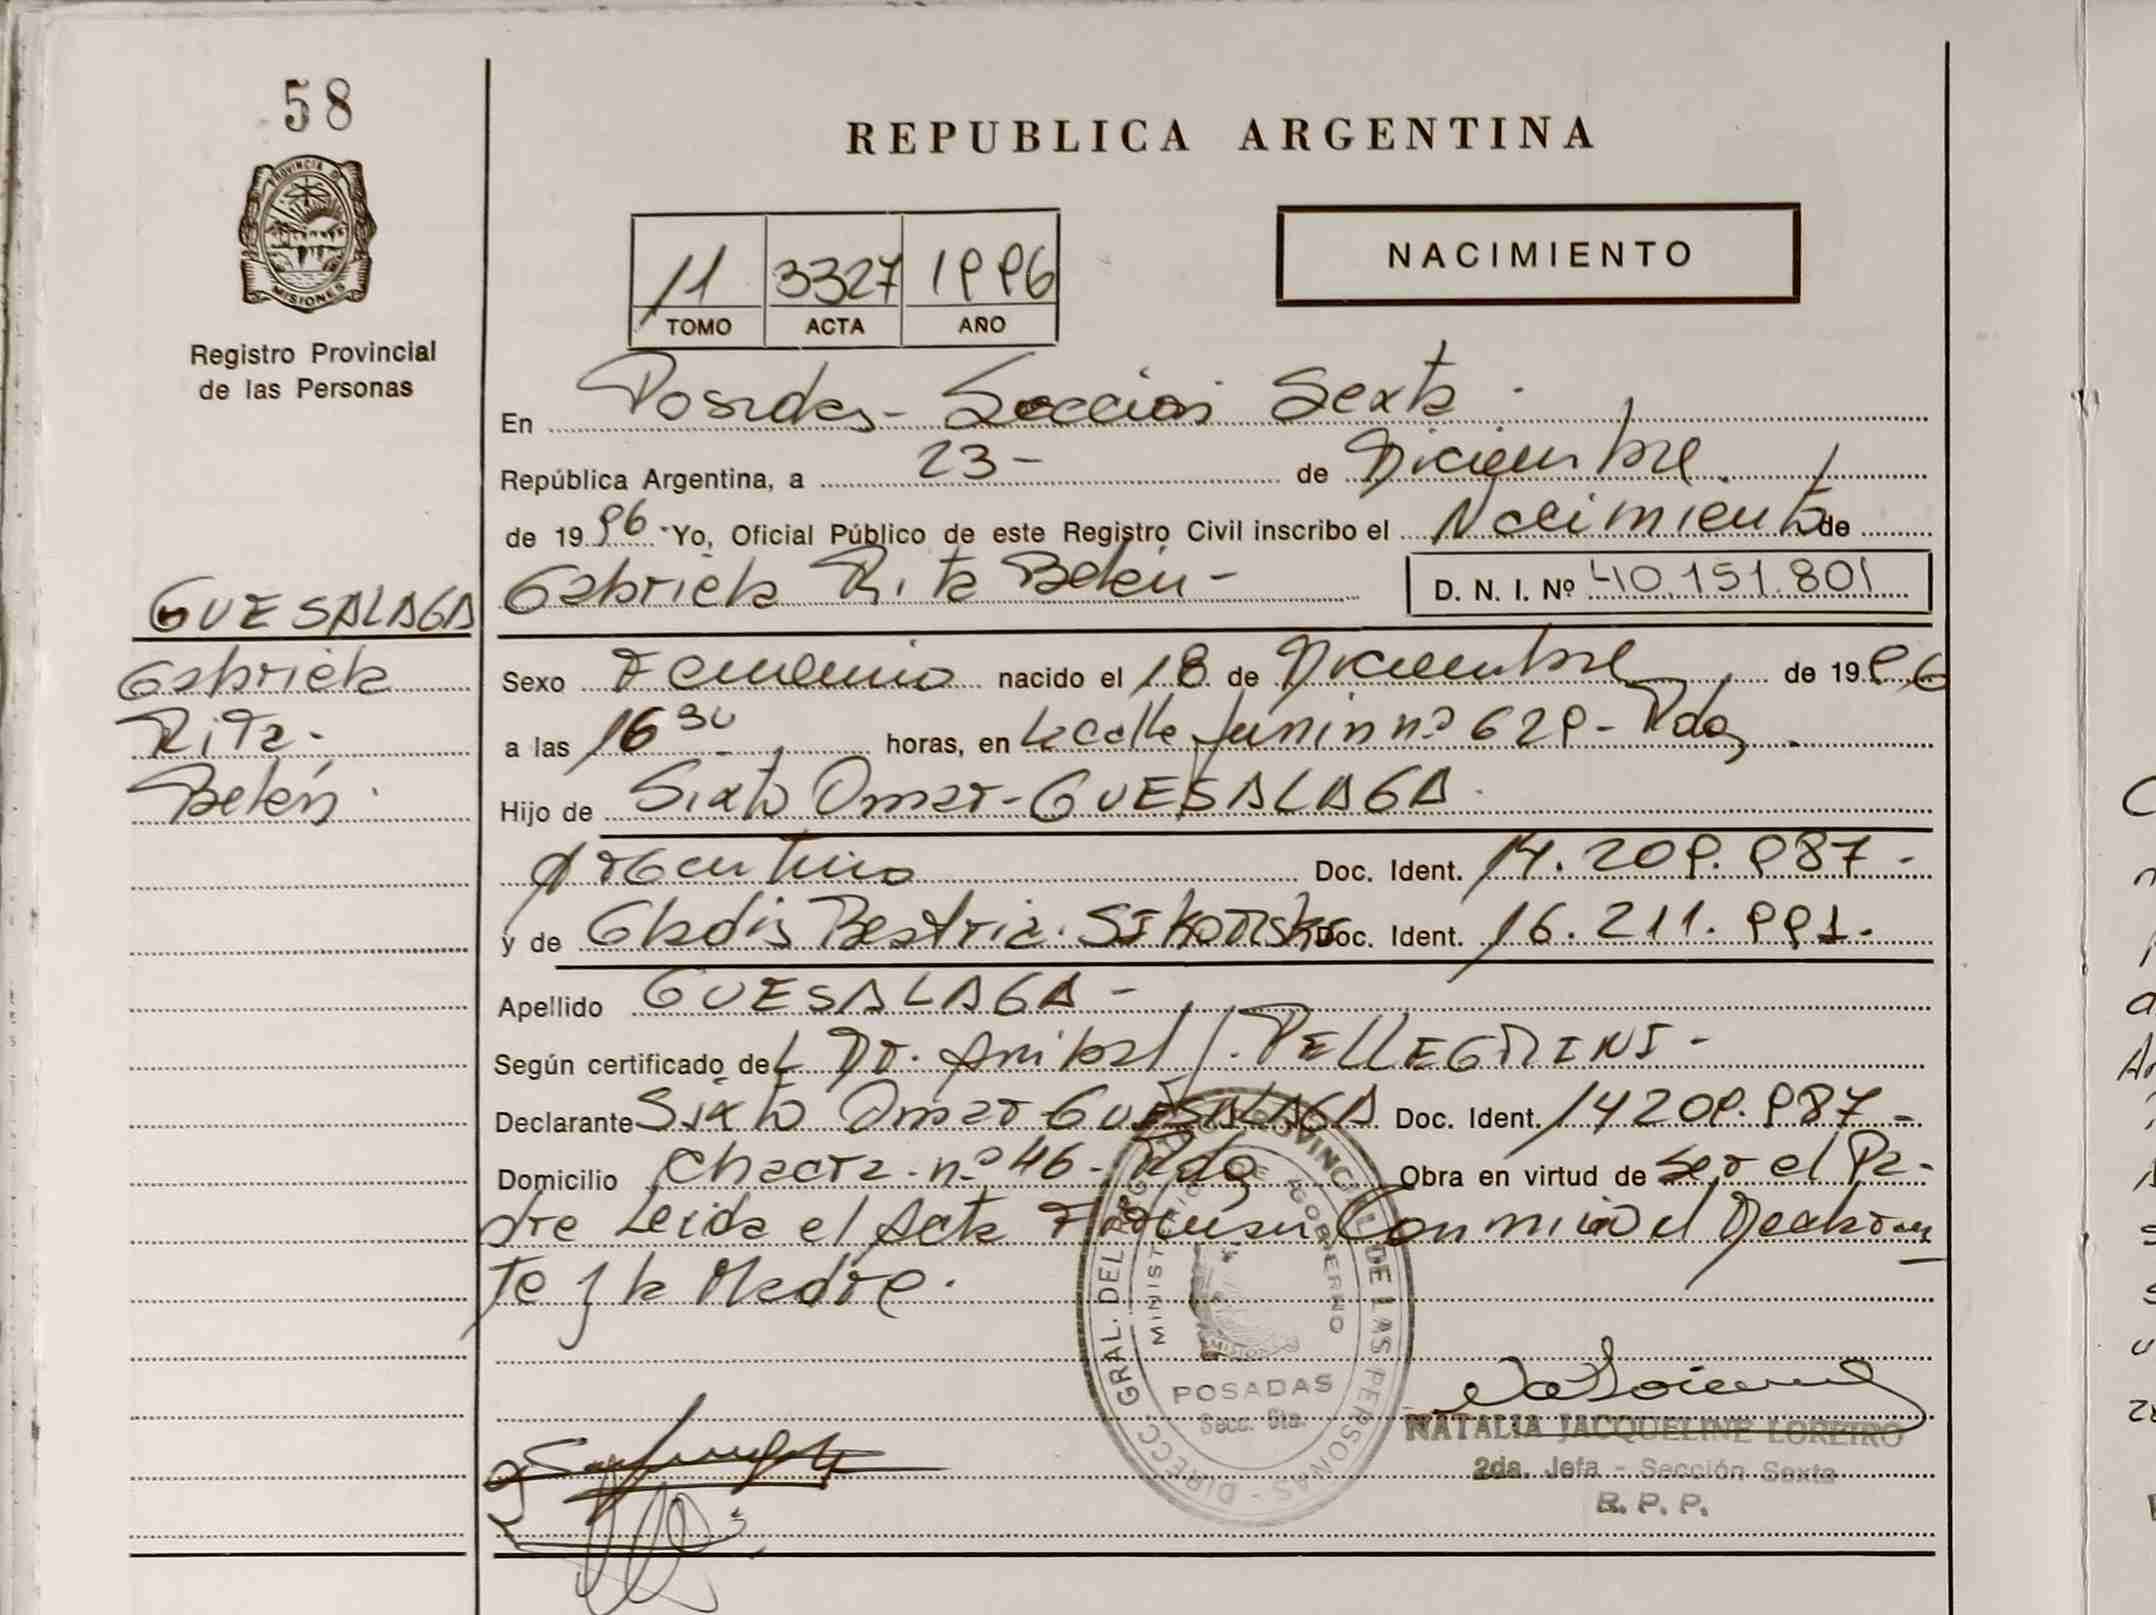 58
PROVINCIA DE
MISIONES
Registro Provincial
de las Personas
GUESALAGA
Gabriela
Rita-
Belén.
REPUBLICA ARGENTINA
NACIMIENTO
11 3327 1996
TOMO ACTA AÑO
En Posadas - Sección Sexta.
República Argentina, a 23- de Diciembre
de 1996. Yo, Oficial Público de este Registro Civil inscribo el Nacimiento de
Gabriela Rita Belén - D. N. I. Nº 40.151.801
Sexo Femenino nacido el 18 de Diciembre de 1996
a las 16 30 horas, en la calle Junin nº 629 - Pdas.
Hijo de Sixto Omar - GUESALAGA.
Argentino Doc. Ident. 14.209.987-
y de Gladis Beatriz. SIKORSKI Doc. Ident. 16.211.991.
Apellido GUESALAGA -
Según certificado del Dr. Anibal J. PELLEGRINI -
Declarante Sixto Omar GUESALAGA Doc. Ident. 14209.987-
Domicilio Chacra nº 46. Pdas Obra en virtud de ser el Pa-
dre Leida el Acta Firman Conmigo el Declaran
te y la Madre.
DIRECC. GRAL. DEL REGISTRO PROVINCIAL DE LAS PERSONAS
MINISTERIO DE GOBIERNO
POSADAS
Secc. 6ta.
NATALIA JACQUELINE LOREIRO
2da. Jefa - Sección Sexta
R. P. P.